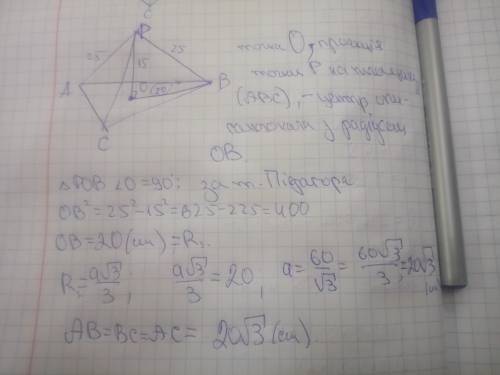 C
P
25 25
15
A O (20) B
C
точка O, проекція
точки P на площину
(ABC), - центр опи-
з радіусом
OB.
△POB ∠O=90°; за т. Піфагора
OB²=25²-15²=625-225=400
OB=20(см)=R.
R=a√3/3, a√3/3=20, a=60/√3=60√3/3=20√3 см
AB=BC=AC= 20√3 (см)